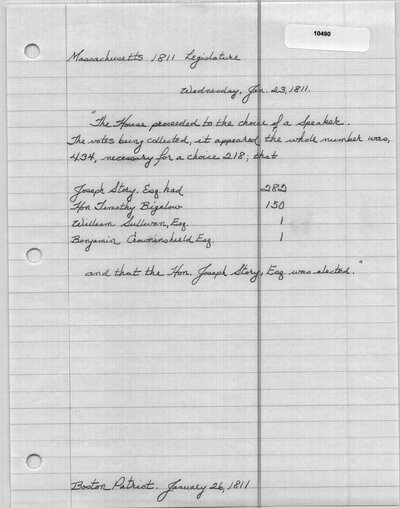 10490
Massachusetts 1811 Legislature
Wednesday, Jan. 23, 1811.
"The House proceeded to the choice of a Speaker.
The votes being collected, it appeared the whole number was,
434, necessary for a choice 218; that
Joseph Story, Esq. had 282
Hon Timothy Bigelow 150
William Sullivan, Esq. 1
Benjamin Crowninshield Esq. 1
and that the Hon. Joseph Story, Esq was elected."
Boston Patriot. January 26, 1811